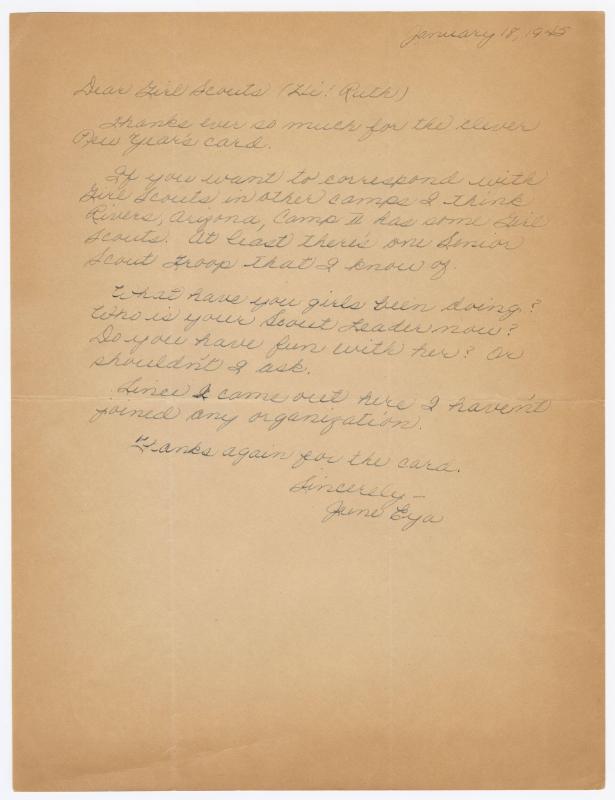 January 18, 1945
Dear Girl Scouts (Hi! Ruth)
Thanks ever so much for the clever
New Year's card.
If you want to correspond with
Girl Scouts in other camps I think
Rivers, Arizona, Camp II has some Girl
Scouts. At least there's one Senior
Scout Troop that I know of.
What have you girls been doing?
Who is your Scout Leader now?
Do you have fun with her? Or
shouldn't I ask.
Since I came out here I haven't
joined any organization.
Thanks again for the card.
Sincerely —
June Eya